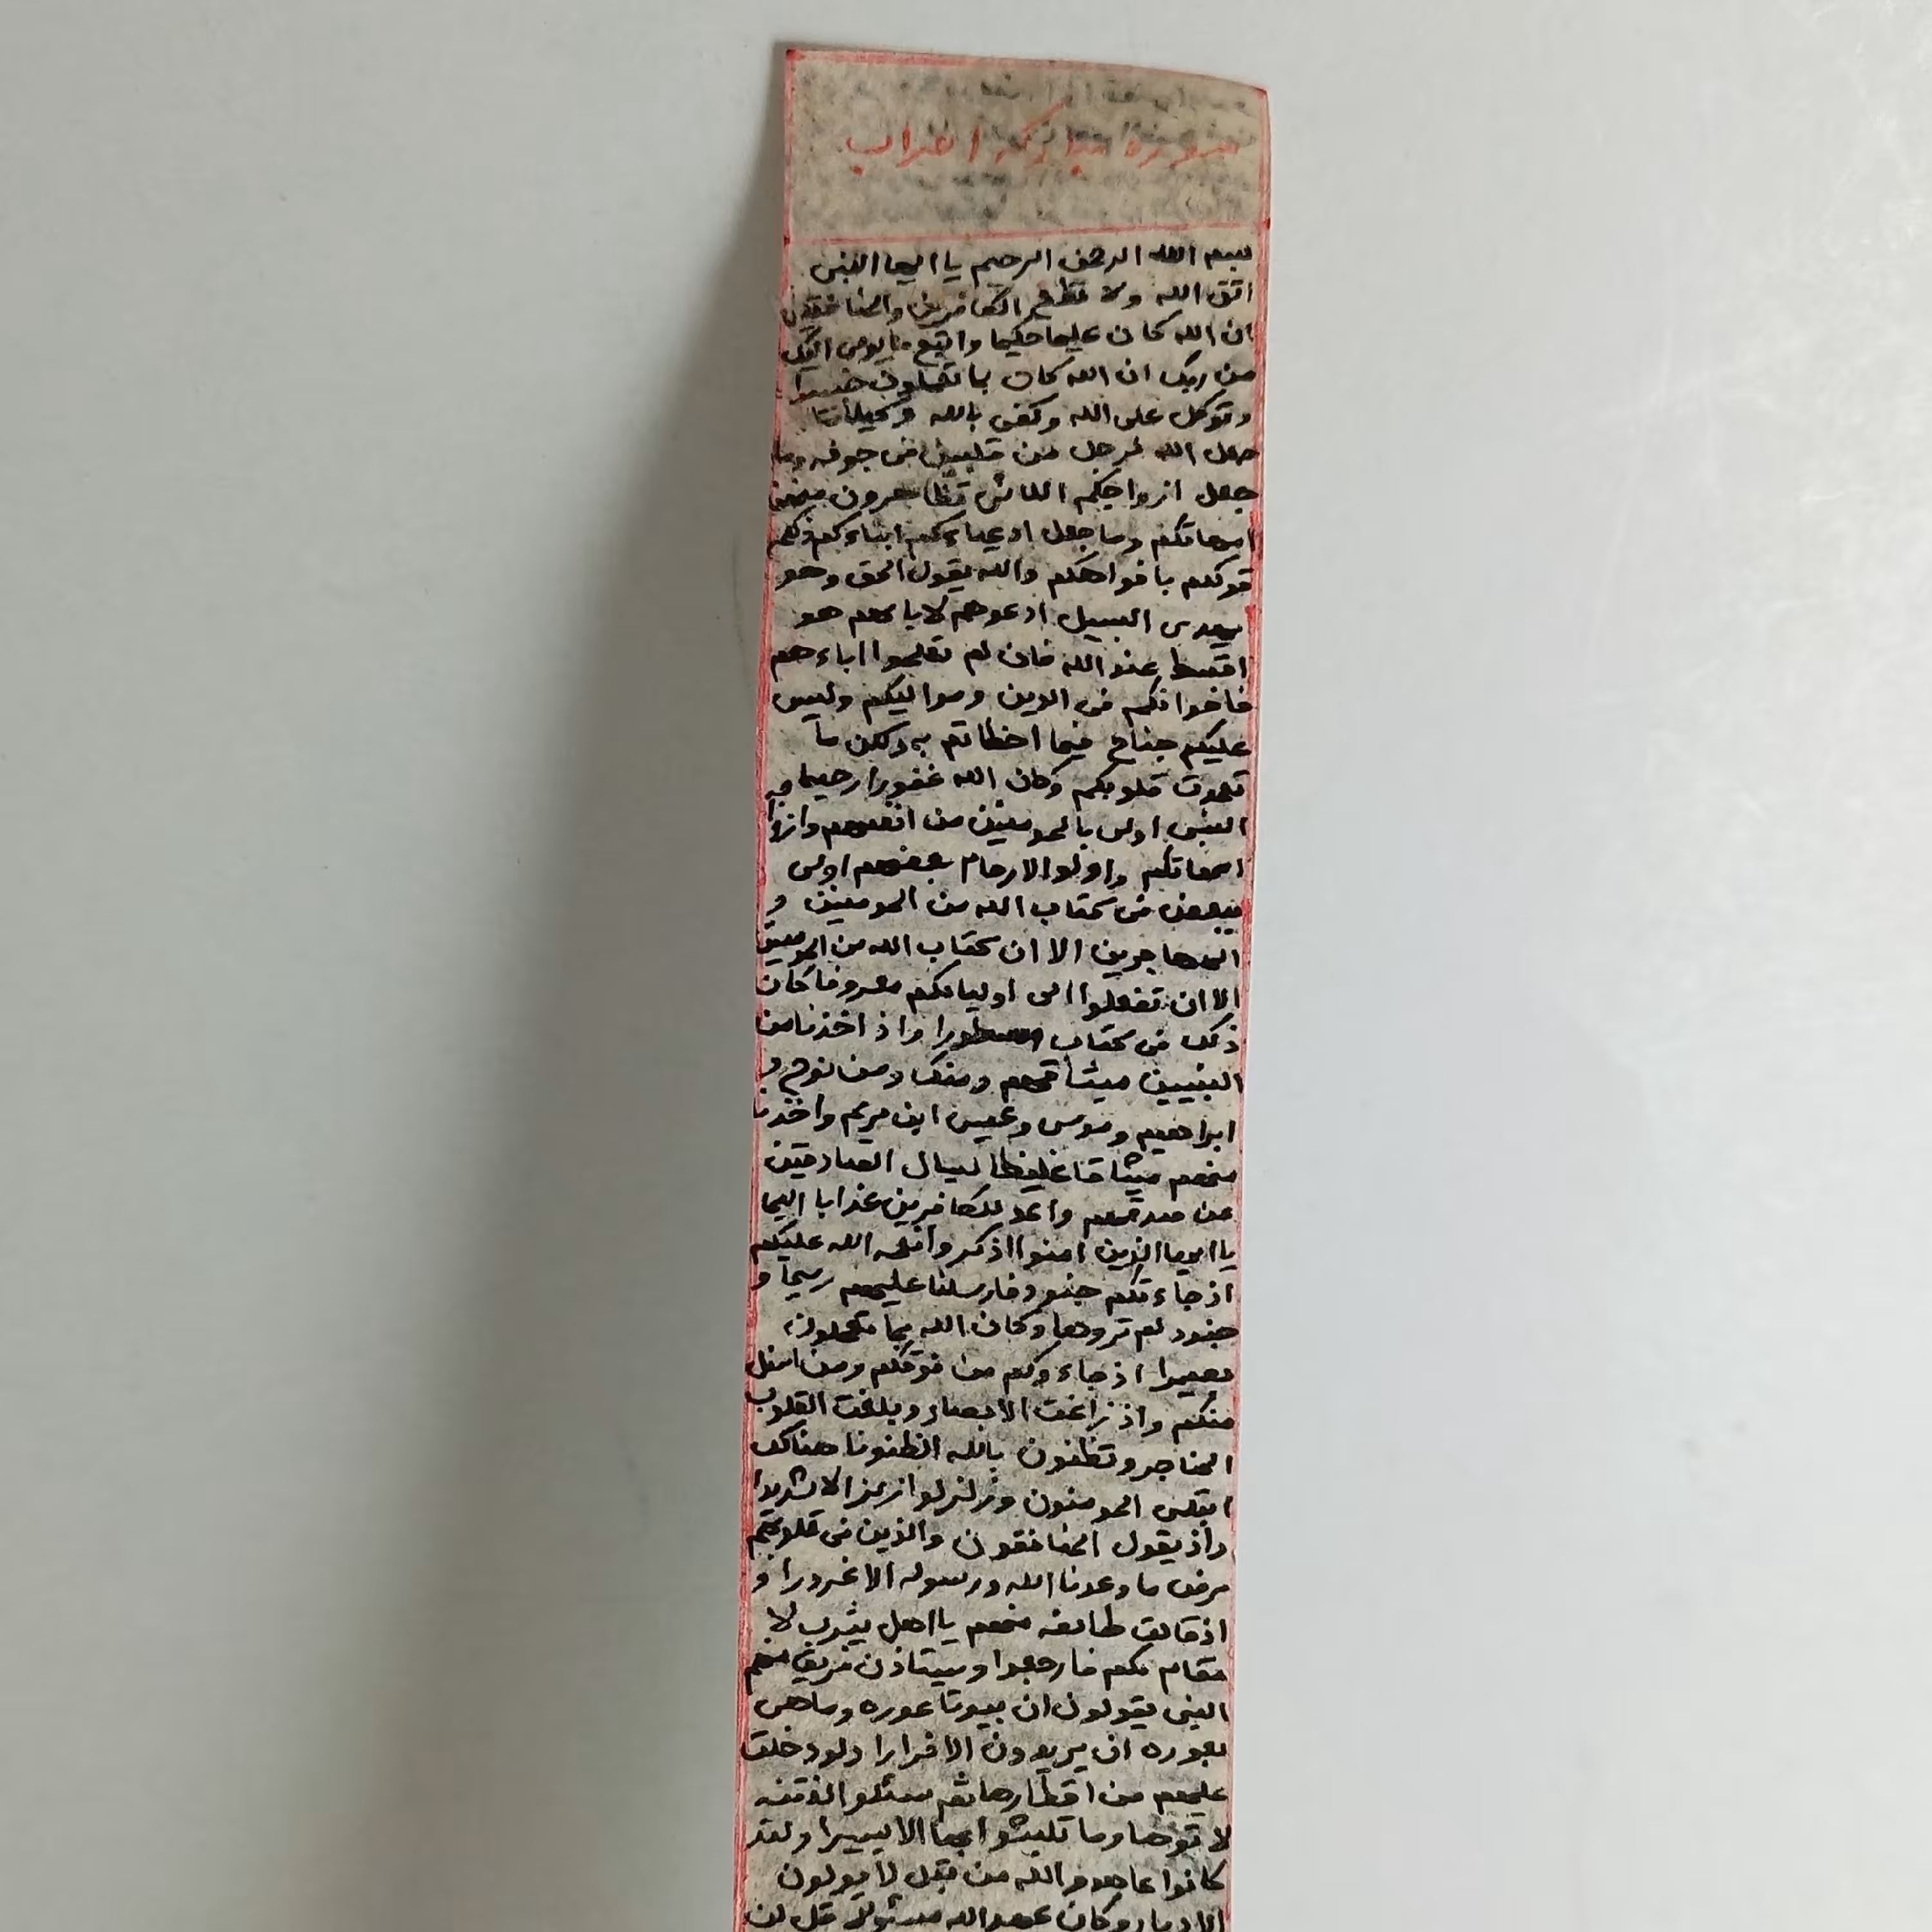 سوره مباركه احزاب
بسم الله الرحمن الرحيم يا ايها النبى
اتق الله ولا تطع الكافرين والمنافقين
ان الله كان عليما حكيما واتبع ما يوحى اليك
من ربك ان الله كان بما تعملون خبيرا
وتوكل على الله وكفى بالله وكيلا ما
جعل الله لرجل من قلبين فى جوفه وما
جعل ازواجكم اللائى تظاهرون منهن
امهاتكم وما جعل ادعياءكم ابناءكم ذلكم
قولكم بافواهكم والله يقول الحق وهو
يهدى السبيل ادعوهم لابائهم هو
اقسط عند الله فان لم تعلموا اباءهم
فاخوانكم فى الدين ومواليكم وليس
عليكم جناح فيما اخطاتم به ولكن ما
تعمدت قلوبكم وكان الله غفورا رحيما
النبى اولى بالمومنين من انفسهم وازوا
امهاتكم واولوا الارحام بعضهم اولى
ببعض فى كتاب الله من المومنين و
المهاجرين الا ان كتاب الله من المومنين
الا ان تفعلوا الى اوليائكم معروفا كان
ذلك فى كتاب مسطورا واذ اخذنا من
النبيين ميثاقهم ومنك ومن نوح و
ابراهيم وموسى وعيسى ابن مريم واخذنا
منهم ميثاقا غليظا ليسال الصادقين
عن صدقهم واعد للكافرين عذابا اليما
يا ايها الذين امنوا اذكروا نعمه الله عليكم
اذ جاءتكم جنود فارسلنا عليهم ريحا و
جنود لم تروها وكان الله بما تعملون
بصيرا اذ جاءوكم من فوقكم ومن اسفل
منكم واذ زاغت الابصار وبلغت القلوب
الحناجر وتظنون بالله الظنونا هنالك
ابتلى المومنون وزلزلوا زلزالا شديدا
واذ يقول المنافقون والذين فى قلوبهم
مرض ما وعدنا الله ورسوله الا غرورا و
اذ قالت طائفه منهم يا اهل يثرب لا
مقام لكم فارجعوا ويستاذن فريق منهم
النبى يقولون ان بيوتا عوره وما هى
بعوره ان يريدون الا فرارا ولو دخلت
عليهم من اقطارها ثم سئلوا الفتنه
لا توها وما تلبثوا بها الا يسيرا ولقد
كانوا عاهدوا الله من قبل لا يولون
الادبار وكان عهد الله مسئولا قل لن